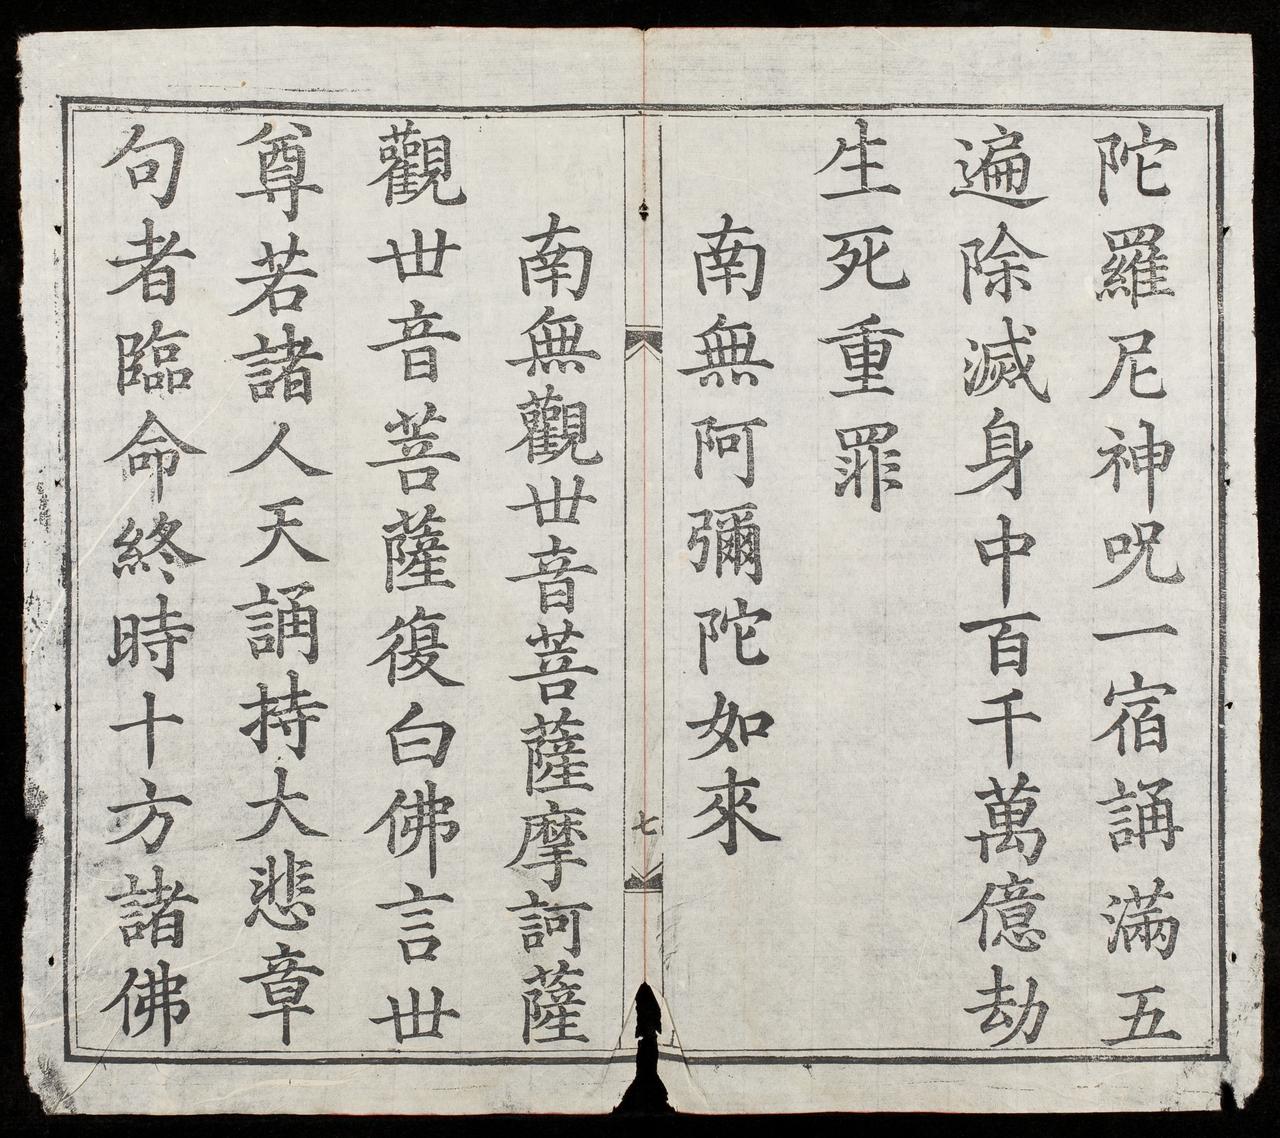 陀羅尼神呪一宿誦滿五
遍除滅身中百千萬億劫
生死重罪
南無阿彌陀如來
七
南無觀世音菩薩摩訶薩
觀世音菩薩復白佛言世
尊若諸人天誦持大悲章
句者臨命終時十方諸佛